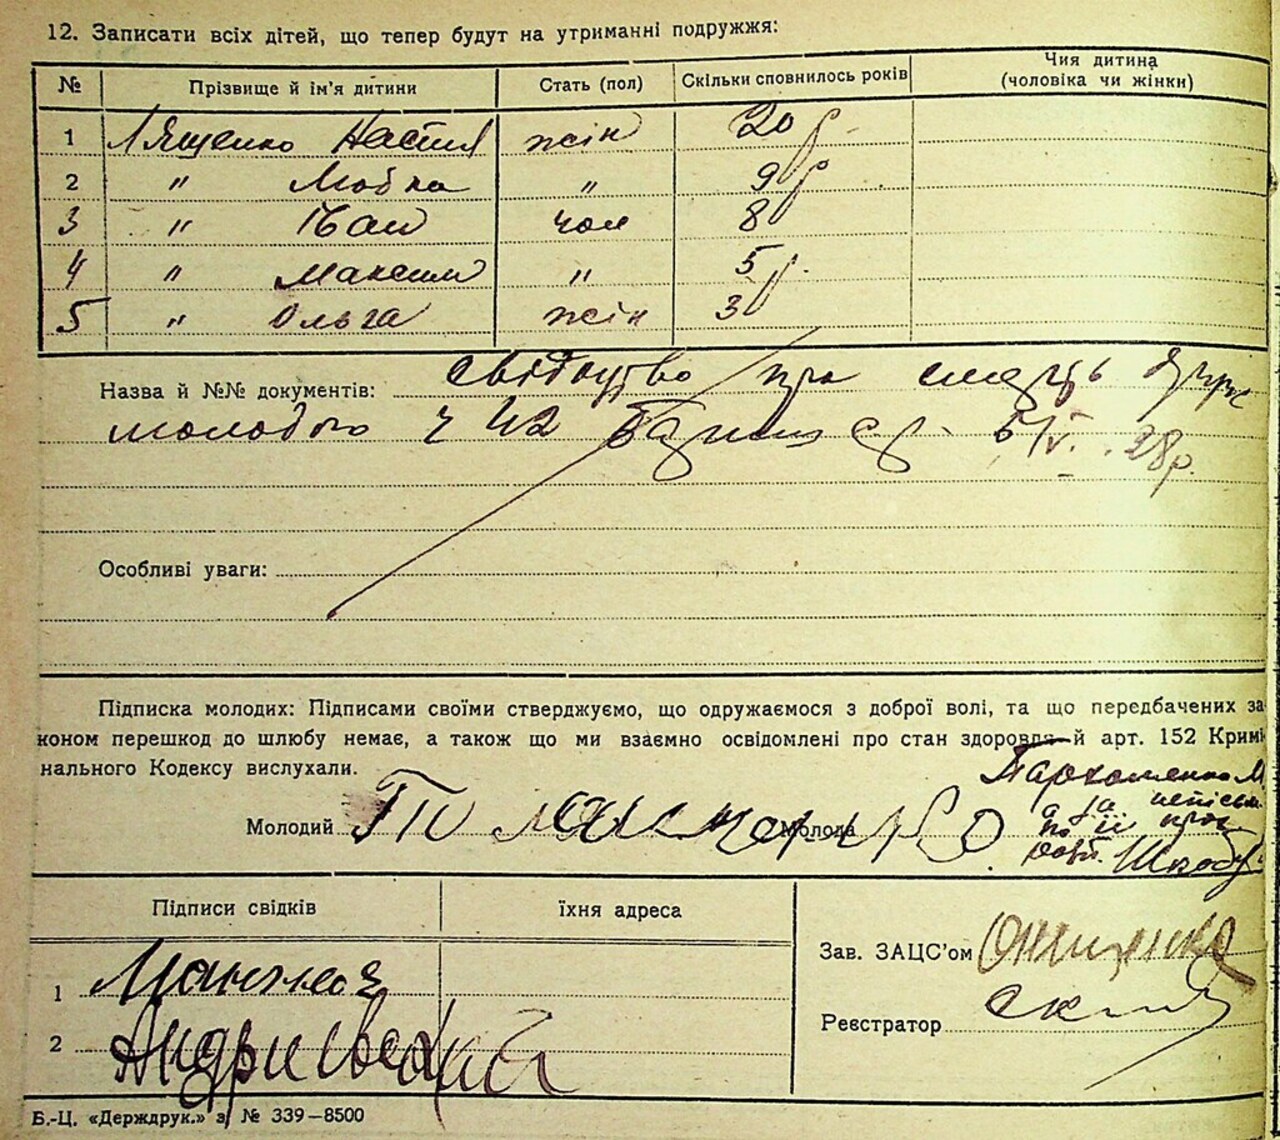 12. Записати всіх дітей, що тепер будут на утриманні подружжя:
№ Прізвище й ім'я дитини Стать (пол) Скільки сповнилось років Чия дитина (чоловіка чи жінки)
1 Лященко Настя жін 20 р.
2 " Любка " 9 р
3 " Іван чол 8
4 " Максим " 5 р.
5 " Ольга жін 3
Назва й №№ документів: свідоцтво про смерть
молодого ч 42 5/V. 28р.
Особливі уваги:
Підписка молодих: Підписами своїми стверджуємо, що одружаємося з доброї волі, та що передбачених за
коном перешкод до шлюбу немає, а також що ми взаємно освідомлені про стан здоровля й арт. 152 Кримі
нального Кодексу вислухали.
Пархоменко М
а за непісьм
по її прос
Молодий Молода
Підписи свідків їхня адреса
Зав. ЗАЦС'ом Онищенко
1
Реєстратор
2 Андриевский
Б.-Ц. «Держдрук.» з. № 339—8500